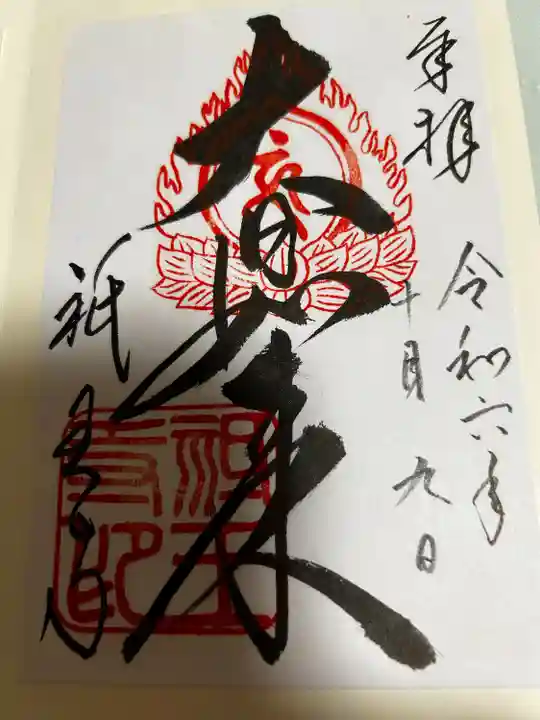 奉拝
令和六年
十月九日
大日如来
祇王寺
祇王寺印